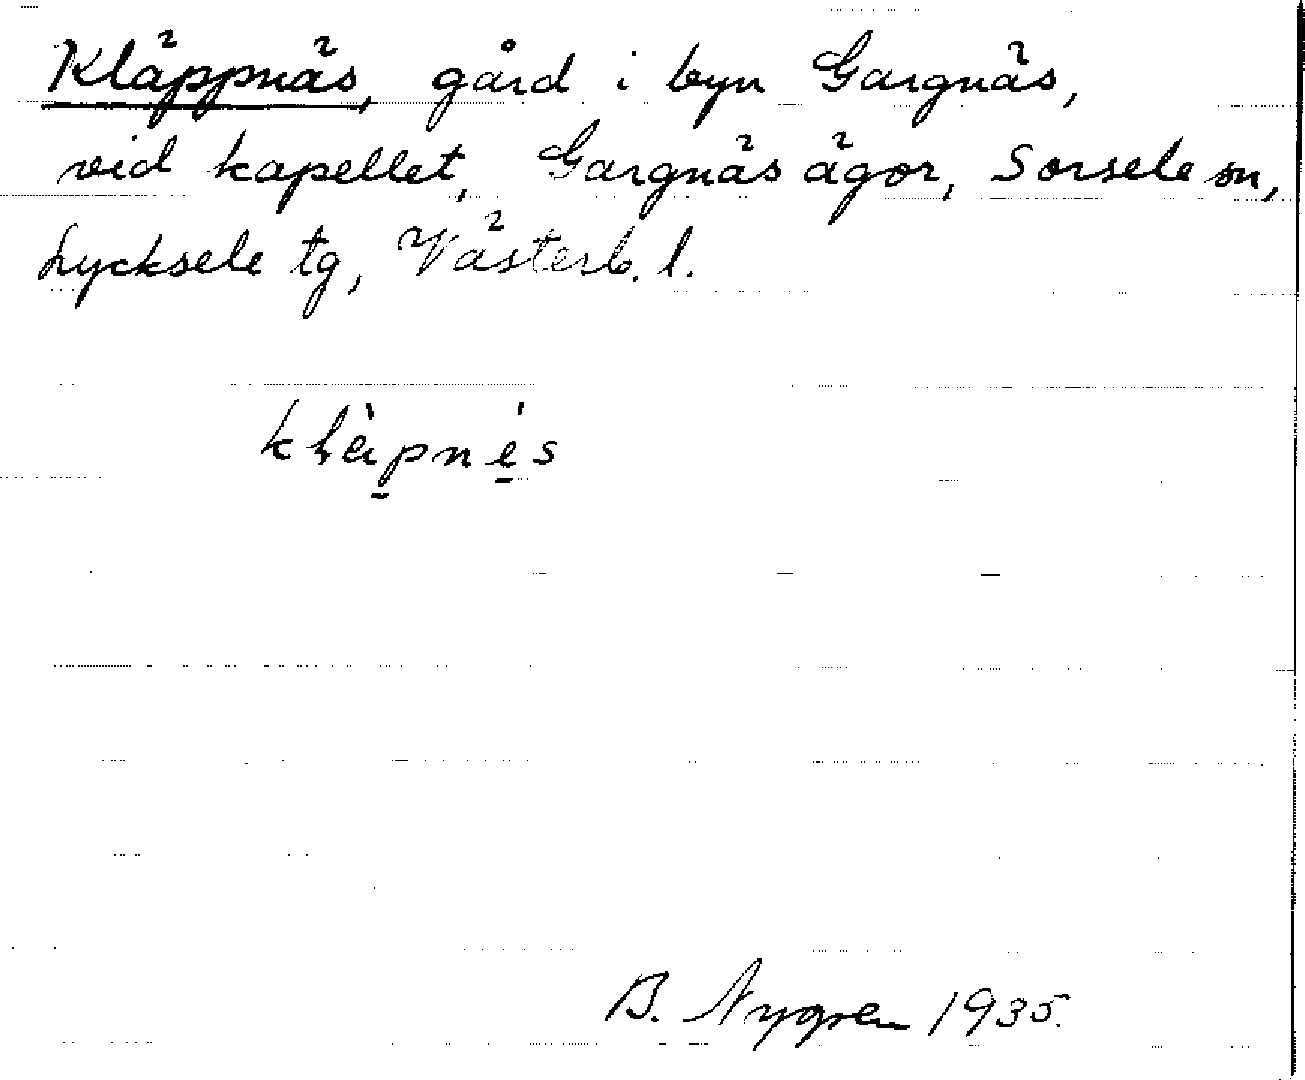 Kläppnäs, gård i byn Gargnäs,
vid kapellet, Gargnäs ägor, Sorsele sn,
Lycksele tg, Västerb. l.
B. Nygren 1935.